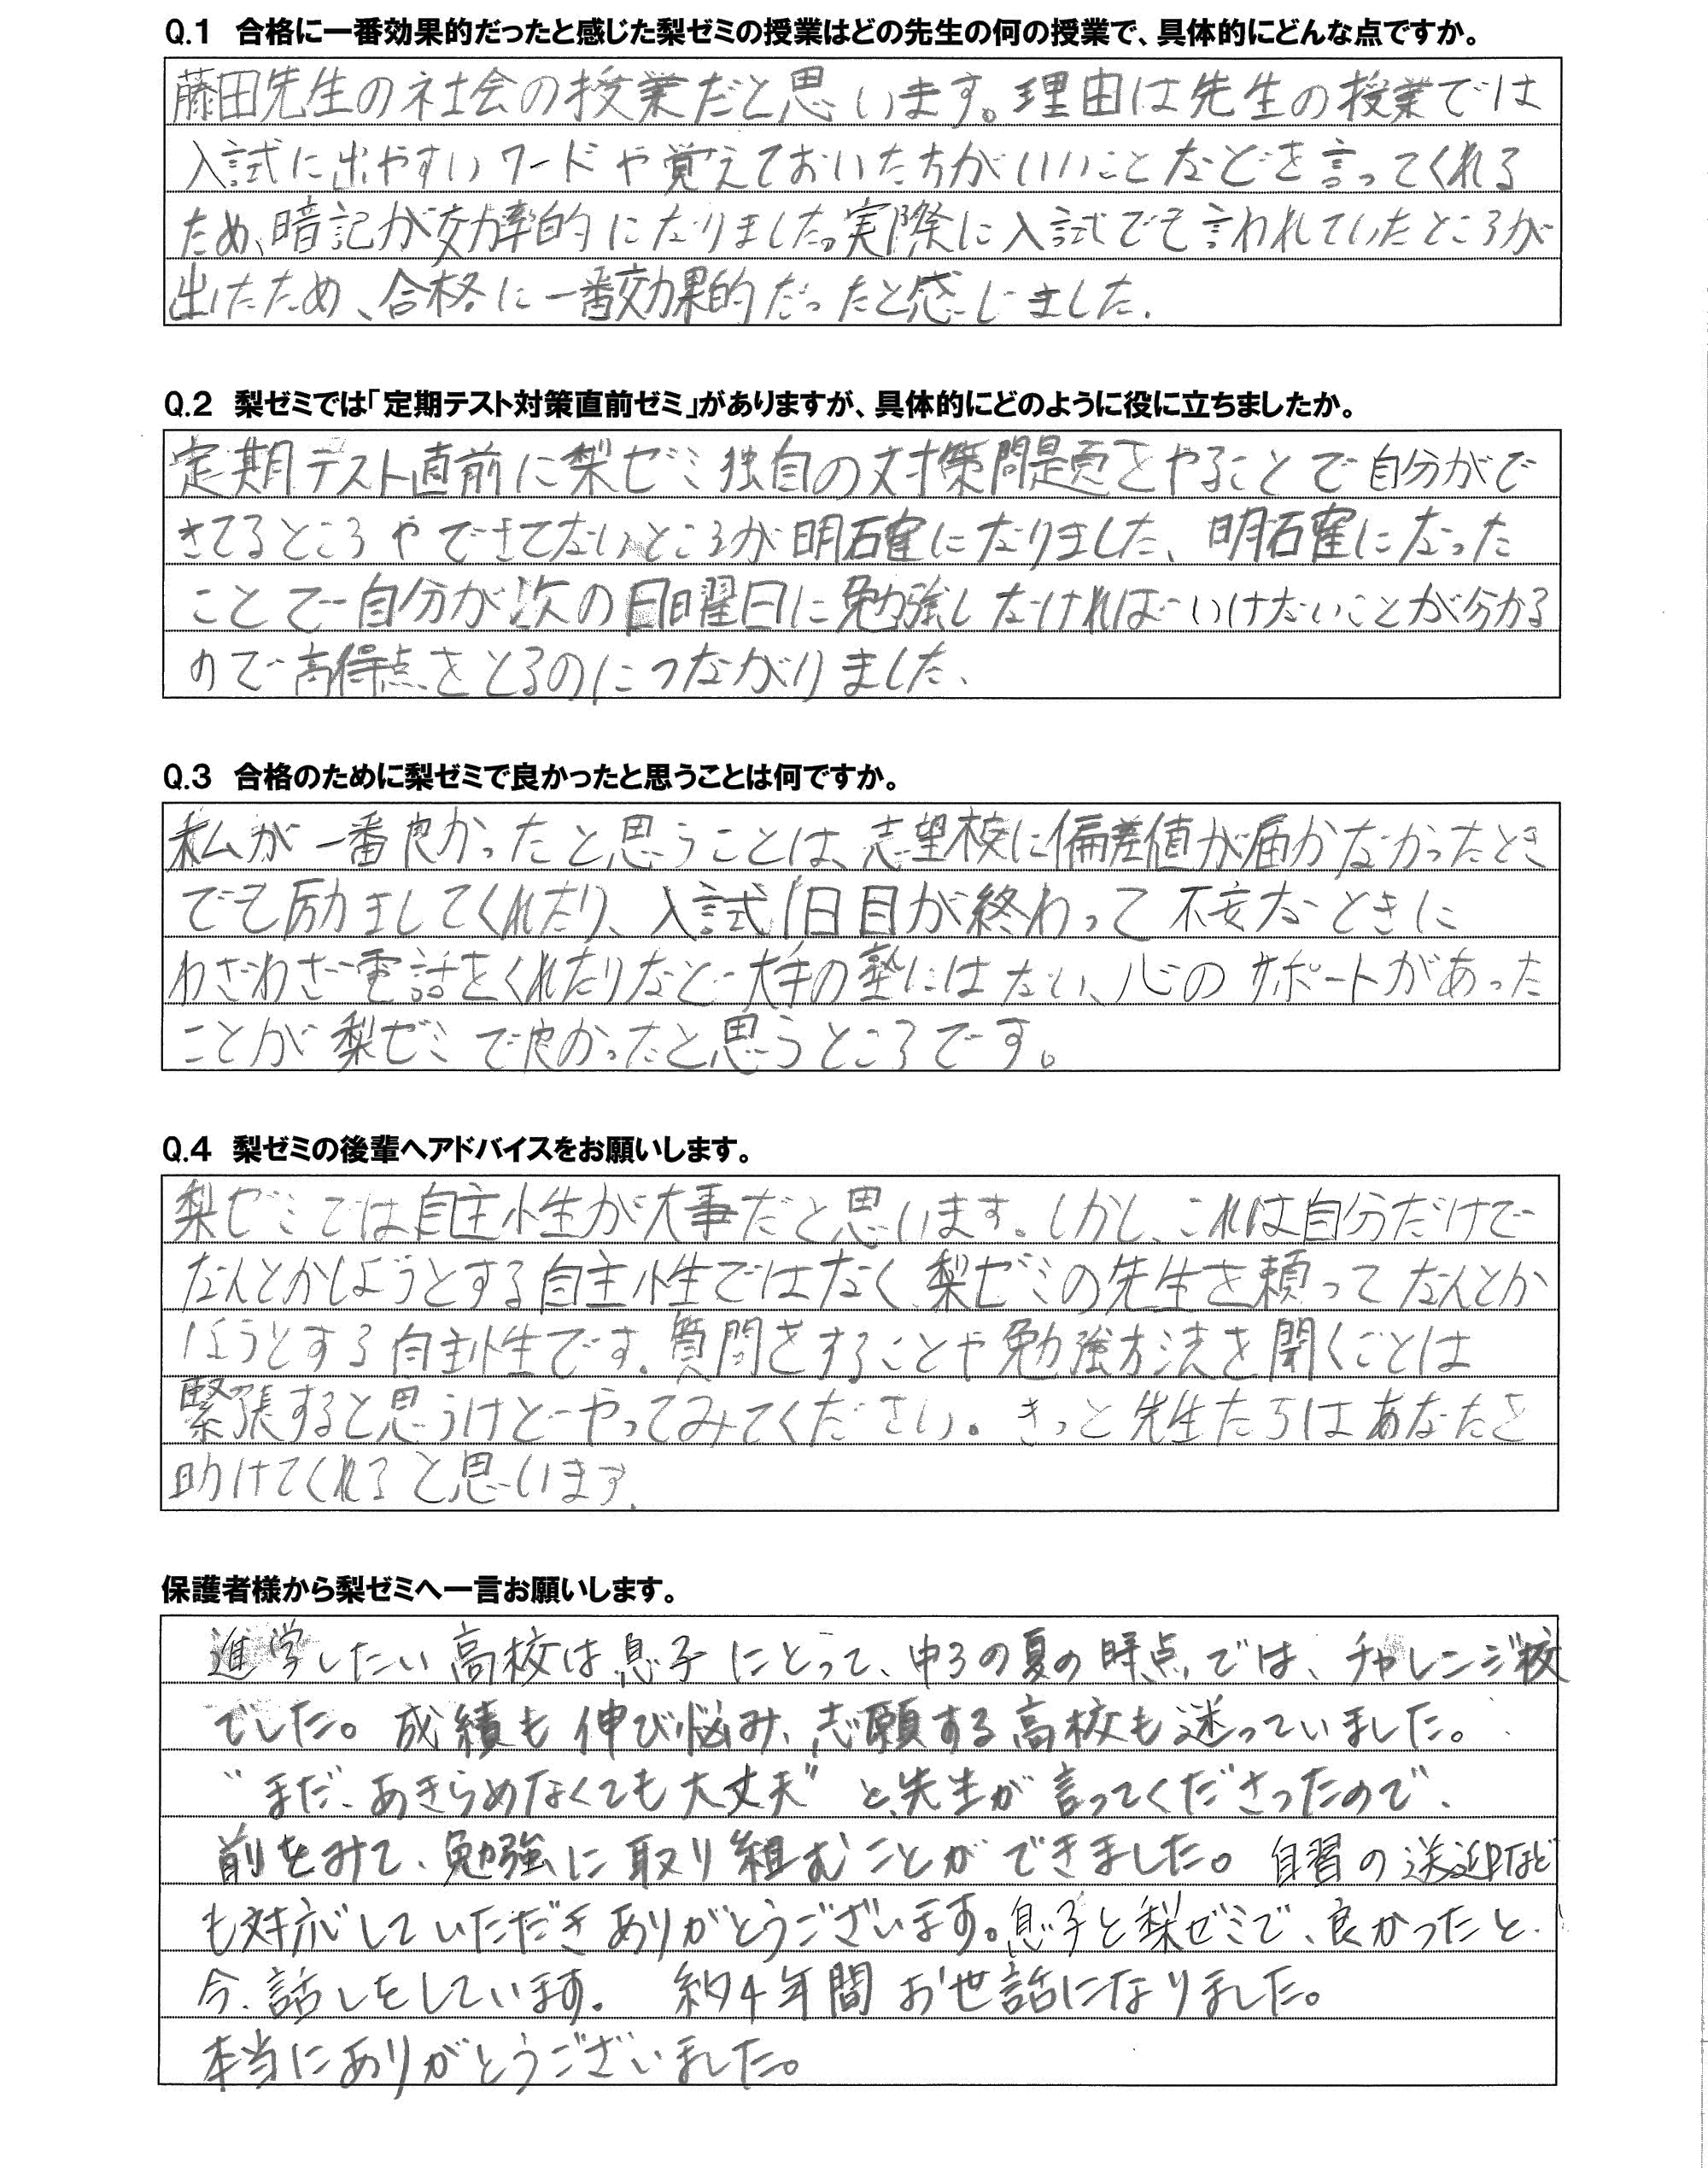 Q.1 合格に一番効果的だったと感じた梨ゼミの授業はどの先生の何の授業で、具体的にどんな点ですか。
藤田先生の社会の授業だと思います。理由は先生の授業では
入試に出やすいワードや覚えておいたちがいいことなどを言ってくれる
ため、暗記が効率的になりました。実際に入試でも言われていたところが
出たため、合格に一番効果的だったと感じました.
Q.2 梨ゼミでは「定期テスト対策直前ゼミ」がありますが、具体的にどのように役に立ちましたか。
定期テスト直前に梨ゼミ独自の対策問題をやることで自分がで
きてるところやできてないところが明確になりました、明確になった
ことで自分が次の日曜日に勉強しなければいけないことが分かる
ので高得点をとるのにつながりました、
Q.3 合格のために梨ゼミで良かったと思うことは何ですか。
私が一番良かったと思うことは、志望校に偏差値が届かなかったとき
でも励ましてくれたり、入試1日目が終わって不安なときに
わざわざ電話をくれたりなど大手の塾にはない、心のサポートがあった
ことが梨ゼミで良かったと思うところです。
Q.4 梨ゼミの後輩へアドバイスをお願いします。
梨ゼミでは自主性が大事だと思います。しかし、これは自分だけで
なんとかしようとする自主性ではなく、梨ゼミの先生を頼ってなんとか
しようとする自主性です.質問をすることや勉強方法を聞くことは
緊張すると思うけどやってみてください。きっと先生たちはあなたを
助けてくれると思います.
保護者様から梨ゼミへ一言お願いします。
進学したい高校は息子にとって、中3の夏の時点では、チャレンジ校
でした。成績も伸び悩み、志願する高校も迷っていました。
"まだ、あきらめなくても大丈夫"と、先生が言ってくださったので、
前をみて、勉強に取り組むことができました。自習の送迎など
も対応していただきありがとうございます。息子と梨ゼミで、良かったと、
今、話しをしています。 約4年間お世話になりました。
本当にありがとうございました。